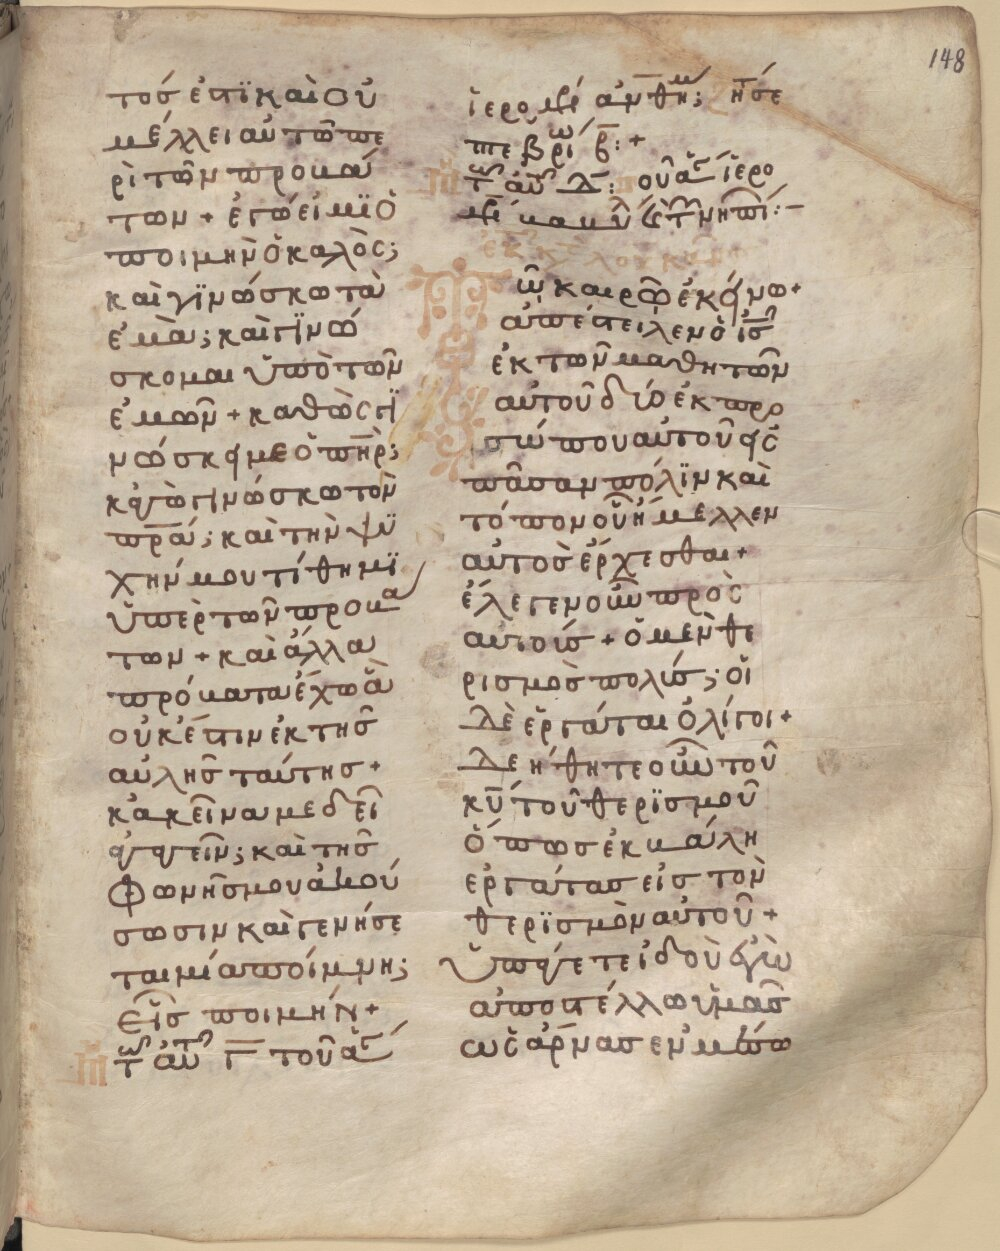 148
τός ἐστϊ καὶ οὐ
μέλλει αὐτῶ πε
ρὶ τῶν προβά
των + ἐγώ εἰμϊ ὁ
ποιμὴν ὁ καλὸς;
καὶ γϊνώσκω τὰ
ἐμὰ; καὶ γϊνώ
σκομαι ὑπὸ τῶν
ἐμῶν + καθὼς γϊ
νώσκει με ὁ πη̅ρ;
κἀγὼ γινώσκω τὸν
πρ̅α; καὶ τὴν ψυ
χήν μου τίθημϊ
ὑπὲρ τῶν προβα
των + καὶ ἄλλα
πρόβατα ἔχω ἃ
οὐκ ἔστιν ἐκ τῆς
αὐλῆς ταύτης +
κἀκεῖνα με δεῖ
ἀγαγεῖν; καὶ τῆς
φωνῆς μου ἀκού
σωσιν καὶ γενήσε
ται μία ποίμνη;
εἷς ποιμήν +
τω αυτω Γ̅ τοῦ ἁγ
ἱερομρ ἀνθημ; ἦ τσε
πτεβρίω β̅: +
τω αυτω Δ̅: τοῦ ἁγ ἱερο
μρ βαβύλ
ἐκ τοῦ κατὰ λουκᾶν
Τῶ καιρῶ ἐκείνω +
ἀπέστειλεν ὁ ι̅ς̅
ἐκ τῶν μαθητῶν
αὐτοῦ δύο ἐκ προ
σώπου αὐτοῦ εἰς
πᾶσαν πόλϊν καὶ
τόπον οὗ ἤμελλεν
αὐτὸς ἔρχεσθαι +
ἔλεγεν οὖν πρὸς
αὐτούς + ὁ μὲν θε
ρισμὸς πολύς; οἱ
δὲ ἐργάται ὀλίγοι +
δεήθητε οὖν τοῦ
κ̅υ̅ τοῦ θερϊσμοῦ
ὅπως ἐκβάλη
ἐργάτας εἰς τὸν
θερϊσμὸν αὐτοῦ +
ὑπάγετε ἰδοὺ ἐγὼ
ἀποστέλλω ὑμᾶς
ὡς ἄρνας ἐν μέσω